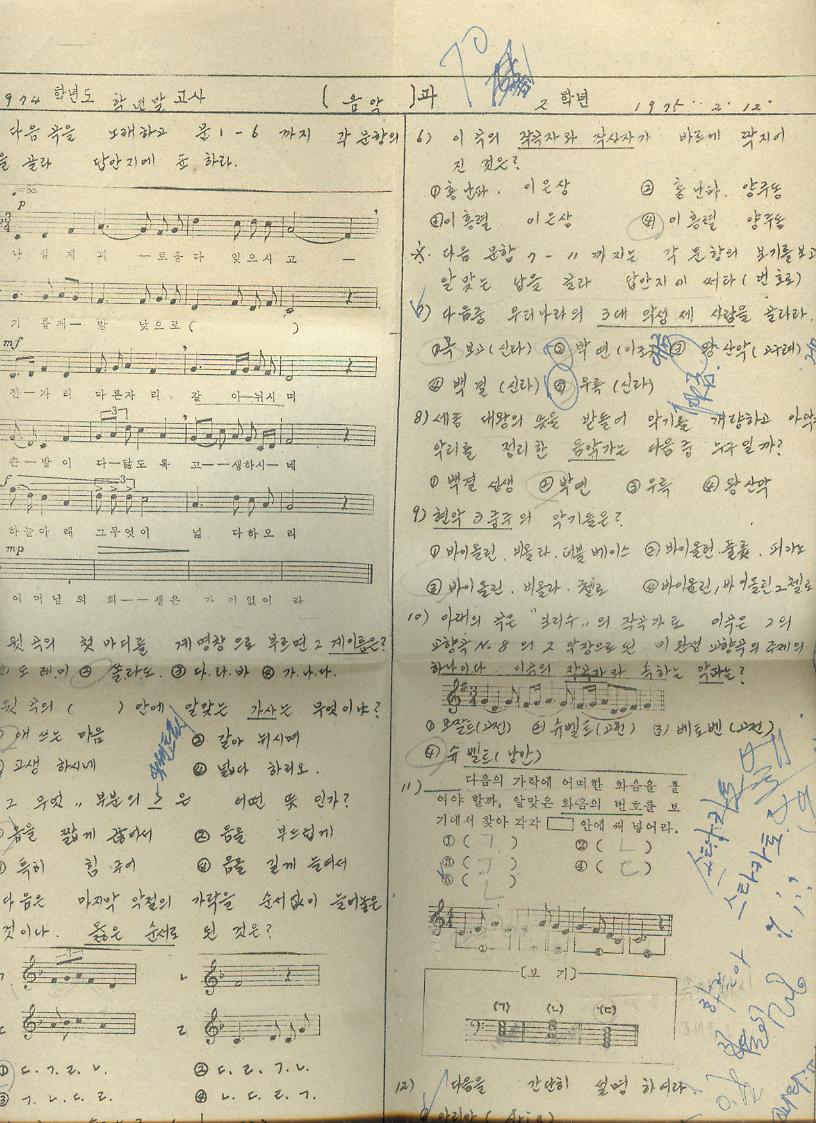 974 학년도 학년말 고사 ( 음악 )과 2 학년 1975. 2. 12.
70
다음 곡을 노래하고 문 1 - 6 까지 각 문항의
을 골라 답안지에 표 하라.
p
낳 실 제 괴 — 로움 다 잊으시 고 —
기 를제 — 밤 낮으로 ( )
mf
진 — 자 리 마른자 리 갈 아 — 뉘시 며
3
손 — 발 이 다 — 닳도 록 고 — — 생하시 — 네
f 3
하늘아 래 그무엇이 넓 다하오 리
mp
어 머 님 의 희 — — 생은 가 이없어 라
윗 곡의 첫 마디를 계명창으로 부르면 그 계이름은?
① 도.레.미 ② 쏠라도. ③ 다.라.바 ④ 가.나.다.
윗 곡의 ( ) 안에 알맞는 가사는 무엇이냐?
애 쓰는 마음 ② 갈아 뉘시며
고생 하시네 ④ 넓다 하리오.
그 무엇 〃 부분의 > 은 어떤 뜻 인가?
음을 짧게 끊어서 ② 음을 부드럽게
특히 힘 주어 ④ 음을 길게 늘여서
다음은 마지막 악절의 가락을 순서없이 늘어놓은
것이다. 옳은 순서로 된 것은?
ㄱ ㄴ
ㄷ ㄹ
① ㄷ.ㄱ.ㄹ.ㄴ. ② ㄷ.ㄹ.ㄱ.ㄴ
③ ㄱ.ㄴ.ㄷ.ㄹ ④ ㄴ.ㄷ.ㄹ.ㄱ.
6) 이 곡의 작곡자와 작사자가 바르게 짝지어
진 것은?
① 홍난파. 이은상 ② 홍난파. 양주동
③ 이흥렬 이은상 ④ 이흥렬 양주동
※. 다음 문항 7 - 11 까지는 각 문항의 보기를 보고
알맞는 답을 골라 답안지에 써라 ( 번호로 )
다음중 우리나라의 3대 악성 세 사람을 골라라.
① 옥보고 (신라) ② 박연 (이조) ③ 왕산악 (고구려)
④ 백결 (신라) ⑤ 우륵 (신라)
8) 세종 대왕의 뜻을 받들어 악기를 개량하고 아악
악리를 정리한 음악가는 다음중 누구일까?
① 백결 선생 ② 박연 ③ 우륵 ④ 왕산악
9) 현악 3중주의 악기들은?
① 바이올린. 비올라. 더블베이스 ② 바이올린. 플룻. 피아노
③ 바이올린. 비올라. 첼로 ④ 바이올린, 바이올린 2 첼로
10) 아래의 곡은 "보리수 〃 의 작곡가로 이곡은 그의
교향곡 No. 8 의 1 악장으로 된 미완성 교향곡의 주제의
하나이다. 이곡의 작곡자와 속하는 악파는?
① 모짤트(고전) ② 슈벨트(고전) ③ 베토벤 (고전)
④ 슈벨트 (낭만)
11) 다음의 가락에 어떠한 화음을 붙
여야 할까, 알맞은 화음의 번호를 보
기에서 찾아 각각 안에 써 넣어라.
① ( ㄱ ) ② ( ㄴ )
③ ( ㄱ ) ④ ( ㄷ )
⑤ ( ㄴ )
① ② ③ ④ ⑤
[ 보 기 ]
(ㄱ) (ㄴ) (ㄷ)
12) 다음을 간단히 설명 하여라
아리아 ( Aria )